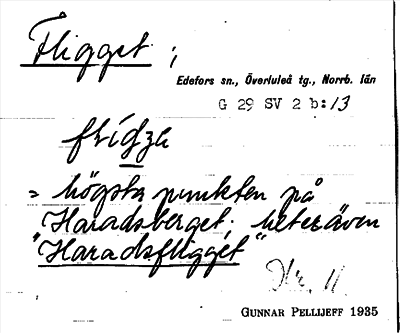 Fligget ;
Edefors sn., Överluleå tg., Norrb. län
G 29 SV 2 b:13
= högsta punkten på
"Haradsberget; heter även
"Haradsfligget"
GUNNAR PELLIJEFF 1935